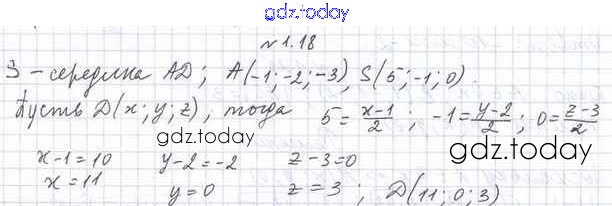 gdz.today
№1.18
S – середина AD; A(-1;-2;-3), S(5;-1;0).
Пусть D(x;y;z), тогда 5=\frac{x-1}{2}; -1=\frac{y-2}{2}; 0=\frac{z-3}{2}
gdz.today
gdz.today
x-1=10 y-2=-2 z-3=0
x=11 y=0 z=3; D(11;0;3)